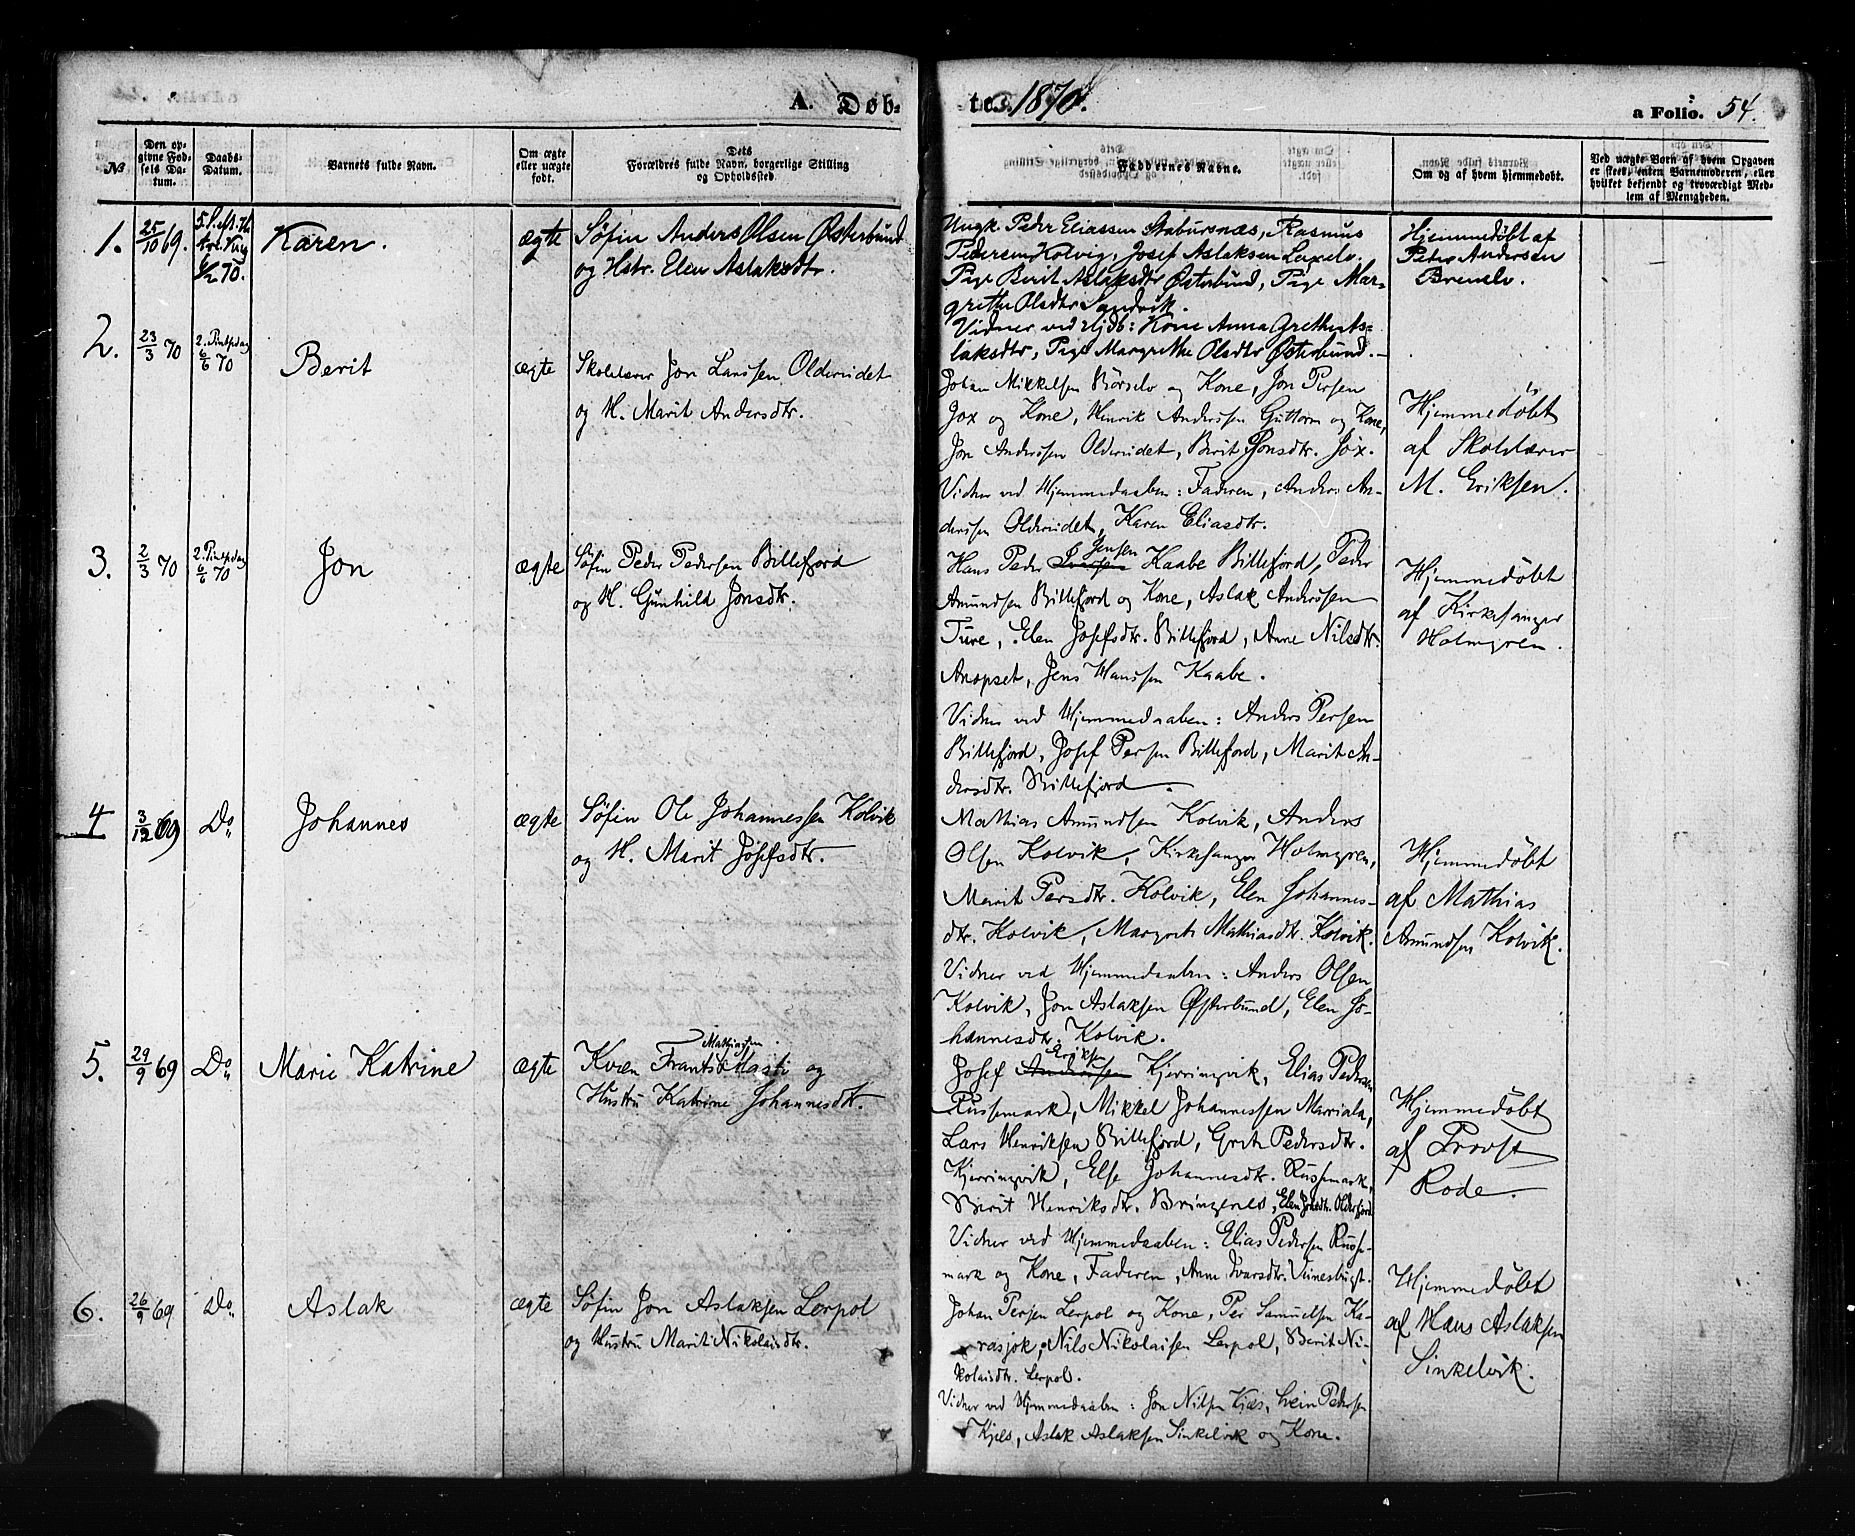 A. Døb-
te. 1870.
a Folio. 54.
№
Den op-
givne Fød-
sels Da-
tum.
Daabs-
Datum.
Barnets fulde Navn.
Om ægte
eller uægte
født.
Dets
Forældres fulde Navn, borgerlige Stilling
og Opholdssted.
Faddernes Navne.
Om og af hvem hjemmedøbt.
Ved uægte Børn af hvem Opgaven
er skeet, enten Barnemoderen, eller
hvilket bekjendt og troværdigt Med-
lem af Menigheden.
1.
25/10 69.
70.
Karen.
ægte
Søfin Anders Olsen Østerbund
og Hstr. Elen Aslaksdtr.
Ungk. Peder Eliassen Stabursnæs, Rasmus
Pedersen Kolvig, Josef Aslaksen Lexelv.
Pige Berit Aslaksdtr Østerbund, Pige Mar-
grethe Olsdtr Sandvik.
Vidner ved Hjdb: Kone Anna Grethe As-
laksdtr, Pige Margrethe Olsdtr Østerbund.
Hjemmedøbt af
Peder Andersen
Brenelv.
2.
23/3 70
2. Pintsedag
6/6 70
Berit
ægte
Skolelærer Jon Larssen Oldereidet
og H. Marit Andersdtr.
Johan Mikkelsen Børselv og Kone, Jon Persen
Jox og Kone, Henrik Anderssen Guttorm og Kone,
Jon Anderssen Oldereidet, Berit Jonsdtr. Jox.
Vidner ved Hjemmedaaben: Faderen, Anders An-
derssen Oldereidet, Karen Eliasdtr.
Hjemmedøbt
af Skolelærer
M. Eriksen.
3.
2/3 70
2. Pintsedag
6/6 70
Jon
ægte
Søfin Peder Pedersen Billefjord
og H. Gunhild Jonsdtr.
Jensen
Hans Peder Iversen Kaabe Billefjord, Peder
Amundsen Billefjord og Kone, Aslak Anderssen
Ture, Elen Josefsdtr. Billefjord, Anne Nilsdtr.
Anopset, Jens Hanssen Kaabe.
Vidner ved Hjemmedaaben: Anders Persen
Billefjord, Josef Persen Billefjord, Marit An-
dersdtr. Billefjord.
Hjemmedøbt
af Kirkesanger
Holmgren.
4
3/12 69
Do
Johannes
ægte
Søfin Ole Johannessen Kolvik
og H. Marit Josefsdtr.
Mathias Amundsen Kolvik, Anders
Olsen Kolvik, Kirkesanger Holmgren,
Marit Persdtr. Kolvik, Elen Johannes-
dtr. Kolvik, Margrete Mathiasdtr. Kolvik.
Vidner ved Hjemmedaaben: Anders Olsen
Kolvik, Jon Aslaksen Østerbund, Elen Jo-
hannesdtr. Kolvik.
Hjemmedøbt
af Mathias
Amundsen Kolvik.
5.
29/9 69
Do
Marie Katrine
ægte
Mathiassen
Kvæn Frants Hasti og
Hustru Katrine Johannesdtr.
Eriksen
Josef Anderssen Kjerringvik, Elias Pedersen
Russemark, Mikkel Johannessen Marriala,
Lars Henriksen Billefjord, Grete Pedersdtr.
Kjerringvik, Else Johannesdtr. Russemark,
Berit Henriksdtr. Bringenes, Elen Jonsdtr. Olderfjord
Vidner ved Hjemmedaaben: Elias Pedersen Russe-
mark og Kone, Faderen, Anne Ivarsdtr. Veinesbugt.
Hjemmedøbt
af Provst
Rode.
6.
26/9 69
Do
Aslak
ægte
Søfin Jon Aslaksen Lerpol
og Hustru Marit Nikolaisdtr.
Johan Persen Lerpol og Kone, Per Samuelsen Ka-
rasjok, Nils Nikolaisen Lerpol, Berit Ni-
kolaisdtr. Lerpol.
Vidner ved Hjemmedaaben: Jon Nilsen Kjæs, Svein Pedersen
Kjæs, Aslak Aslaksen Sinkelvik og Kone.
Hjemmedøbt
af Hans Aslaksen
Sinkelvik.